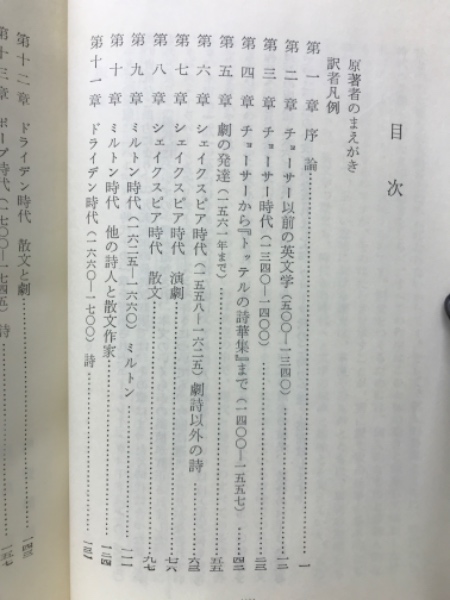 目次
原著者のまえがき
訳者凡例
第一章 序論……一
第二章 チョーサー以前の英文学(五〇〇―一三四〇)……一二
第三章 チョーサー時代(一三四〇―一四〇〇)……二三
第四章 チョーサーから『トッテルの詩華集』まで(一四〇〇―一五五七)……四二
第五章 劇の発達(一五六一年まで)……五五
第六章 シェイクスピア時代(一五五八―一六二五)劇詩以外の詩……六三
第七章 シェイクスピア時代 演劇……七六
第八章 シェイクスピア時代 散文……九七
第九章 ミルトン時代(一六二五―一六六〇)ミルトン……一一一
第十章 ミルトン時代 他の詩人と散文作家……一二四
第十一章 ドライデン時代(一六六〇―一七〇〇)詩……一三一
第十二章 ドライデン時代 散文と劇……一四三
第十三章 ポープ時代(一七〇〇―一七四五)詩……一五七